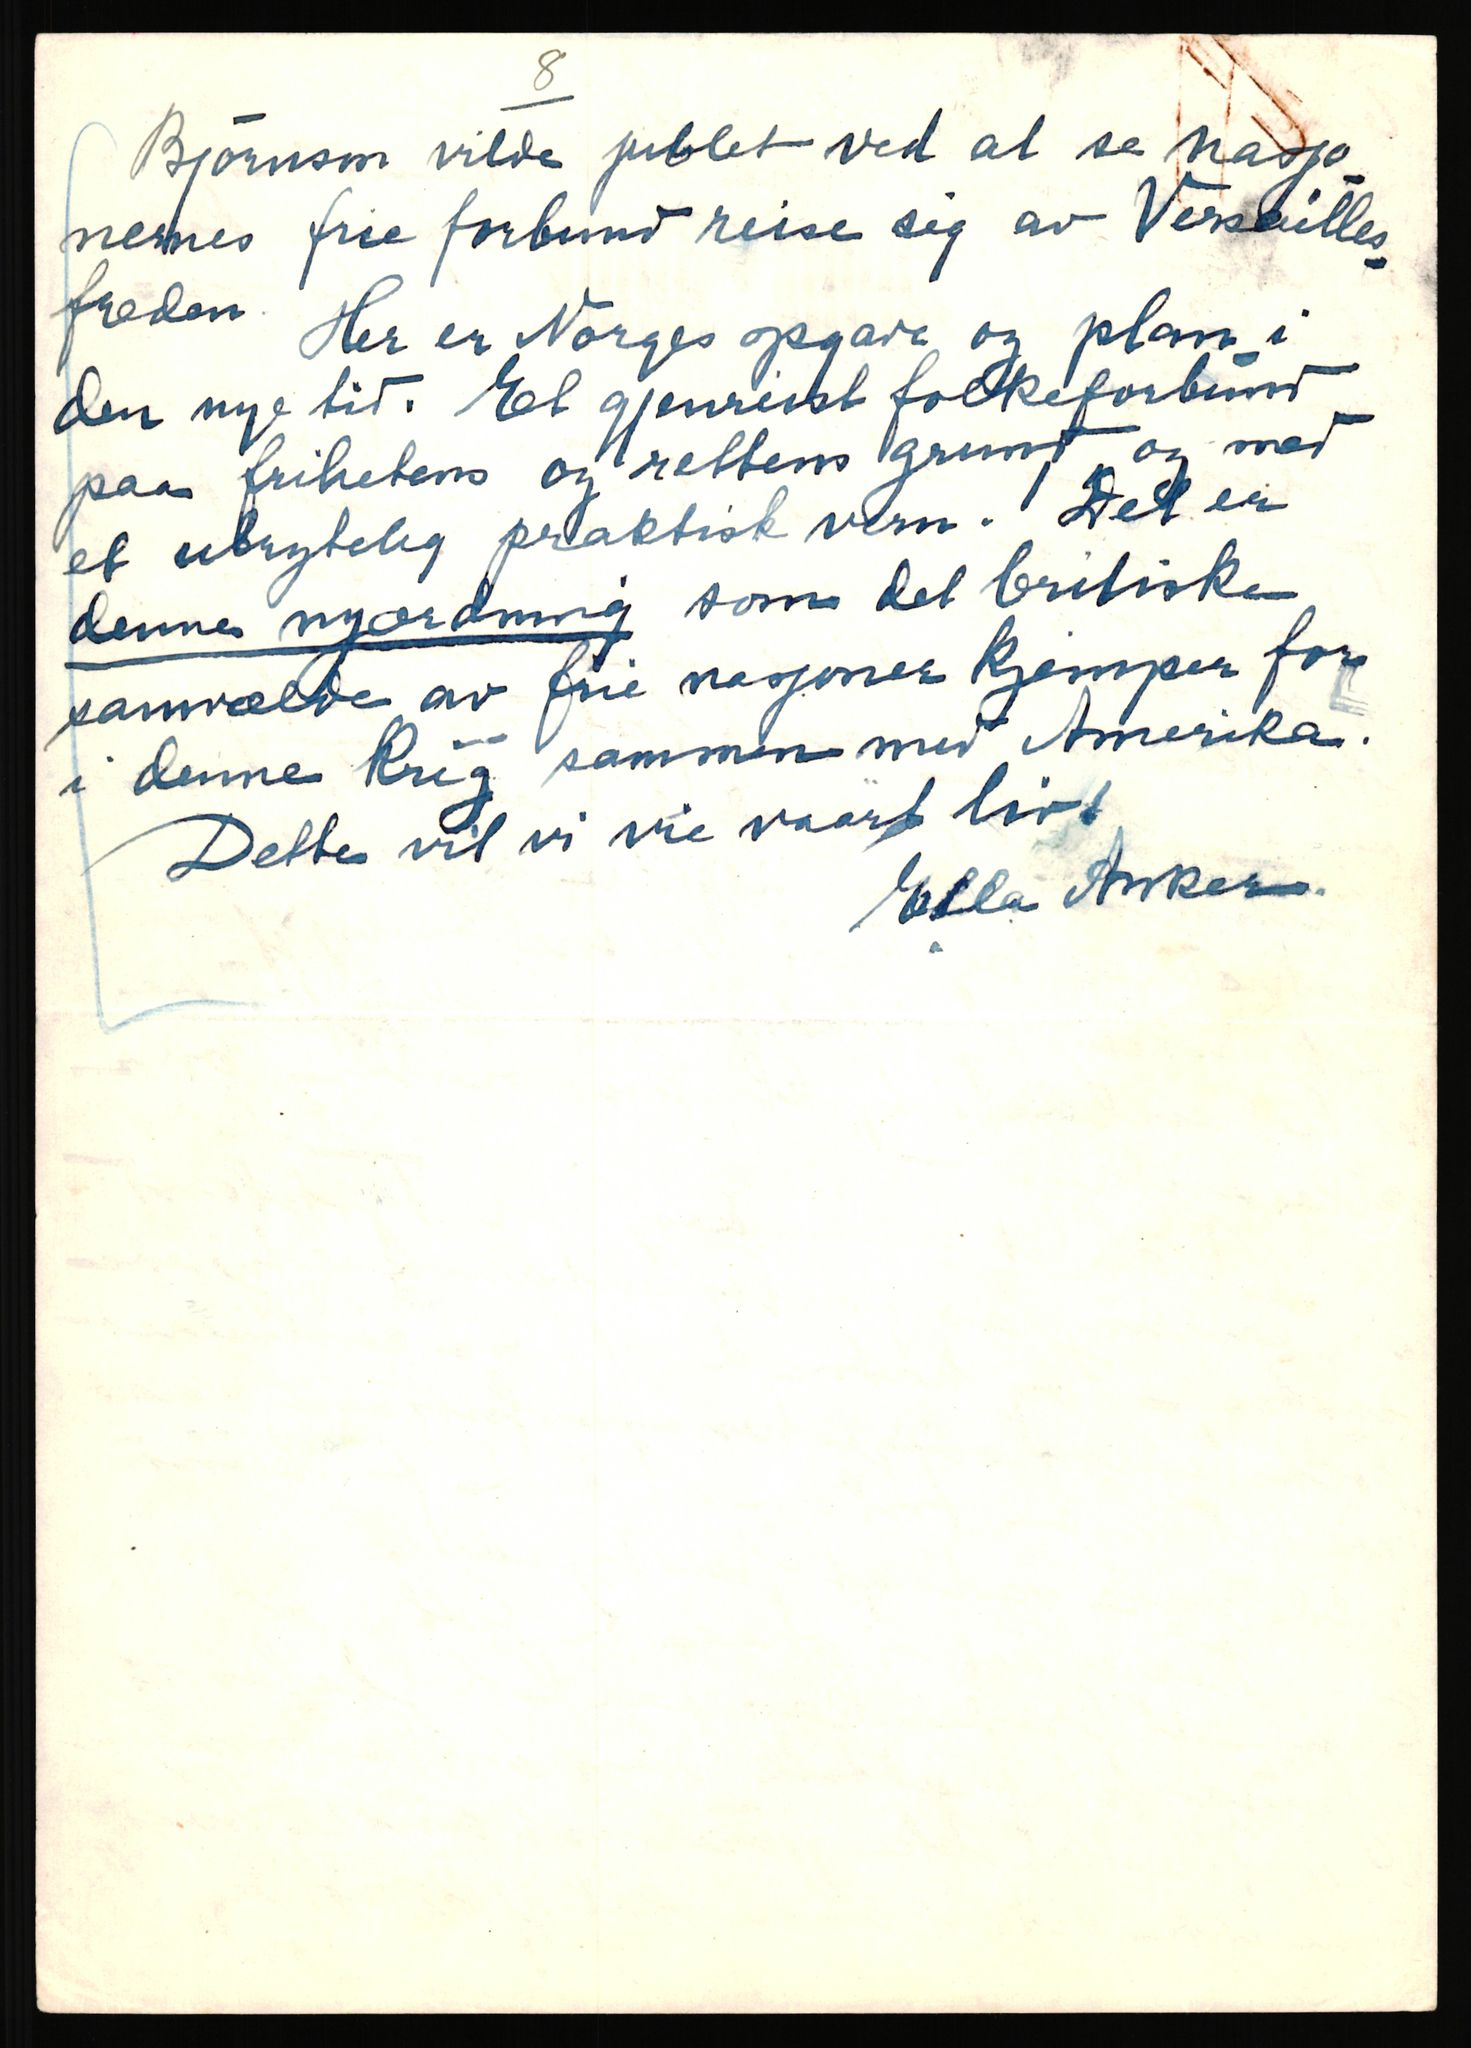 8
Björnson vilde jublet ved at se nasjo
nernes frie forbund reise sig av Versailles-
freden. Her er Norges opgave og plan i
den nye tid. Et gjenreist folkeforbund
paa frihetens og rettens grund og med
et ubrytelig praktisk vern. Det er
denne nyordning som det britiske
samvælde av frie nasjoner kjemper for
i denne krig sammen med Amerika.
Dette vil vi vie vaart liv!
Ella Anker.